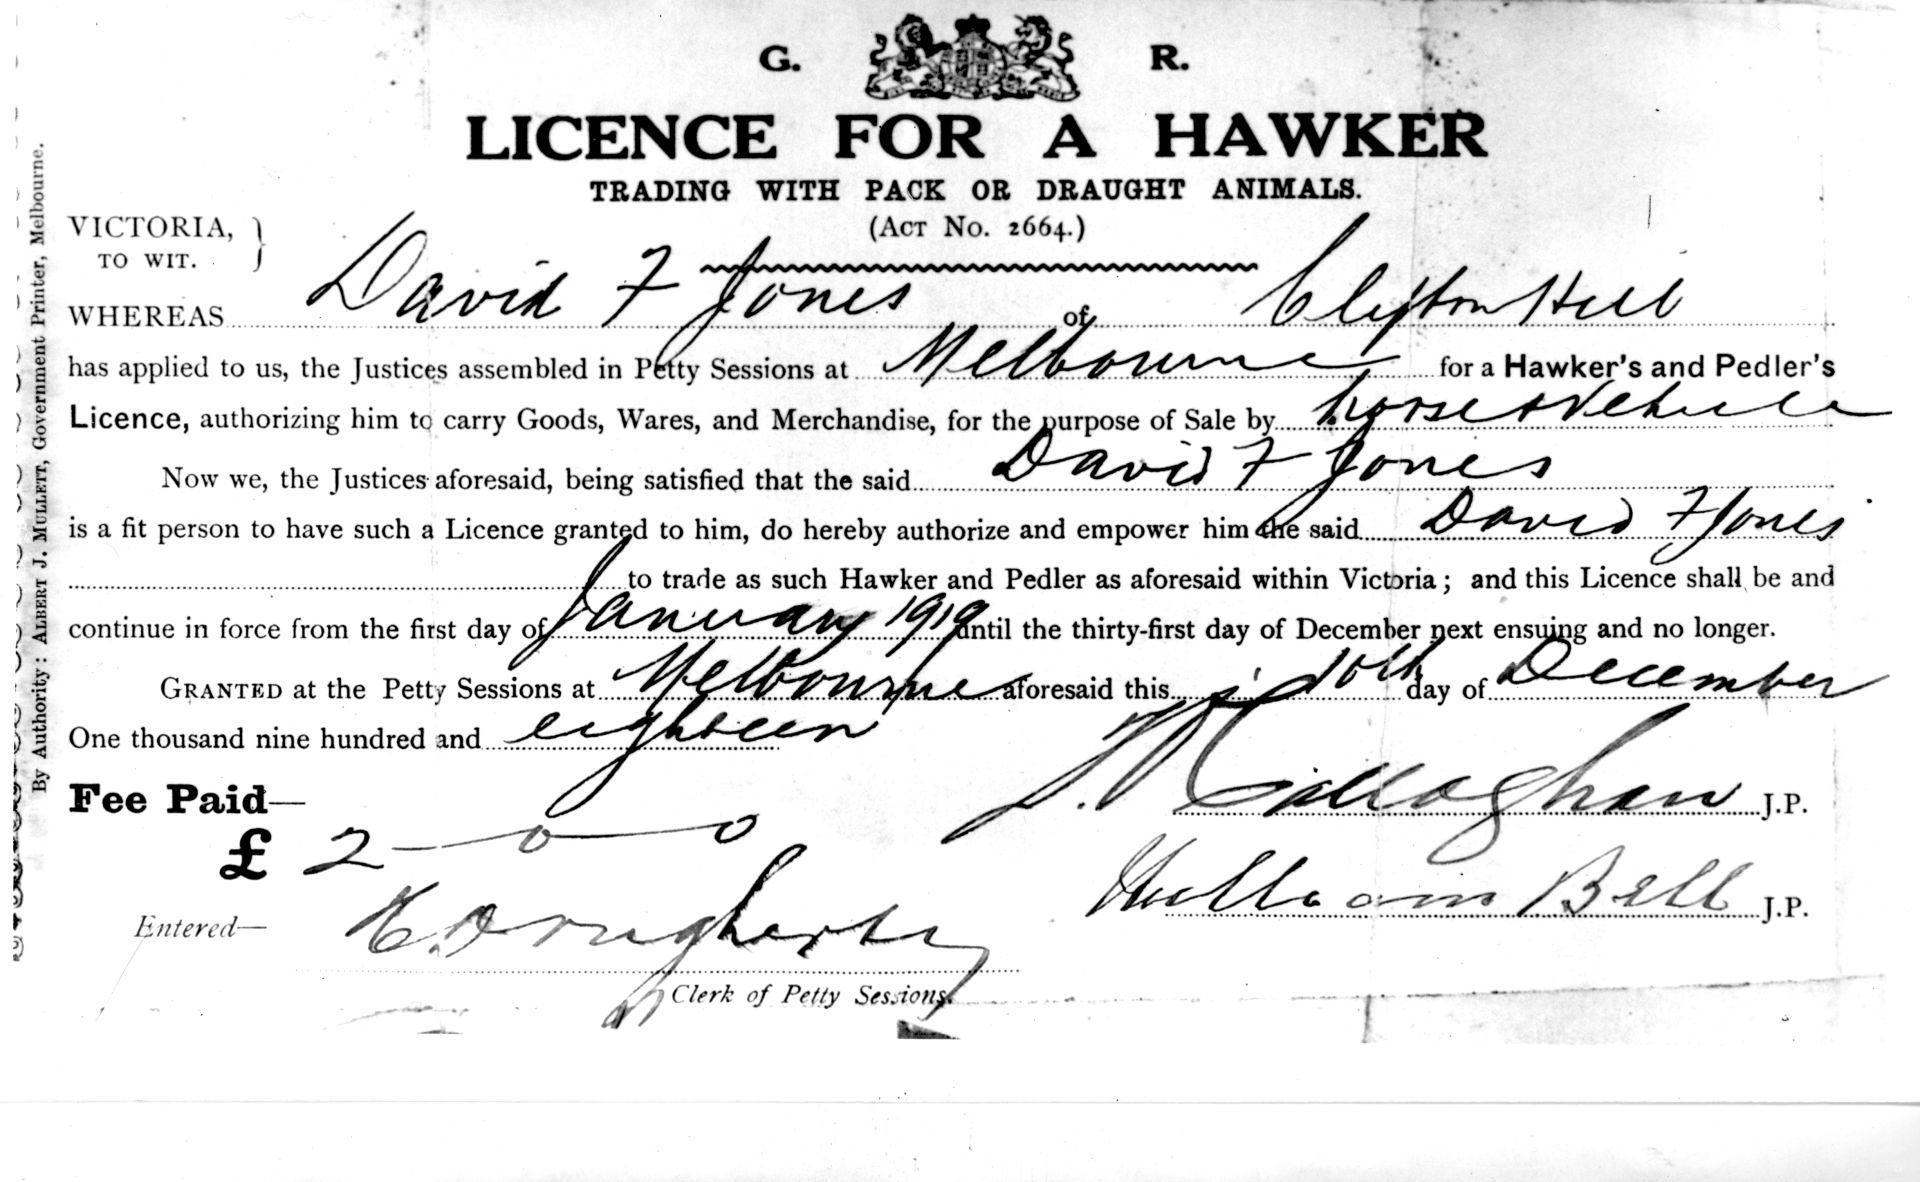 G. R.
LICENCE FOR A HAWKER
TRADING WITH PACK OR DRAUGHT ANIMALS.
(ACT No. 2664.)
VICTORIA,
TO WIT.
WHEREAS David F Jones of Clifton Hill
has applied to us, the Justices assembled in Petty Sessions at Melbourne for a Hawker's and Pedler's
Licence, authorizing him to carry Goods, Wares, and Merchandise, for the purpose of Sale by horse & Vehicle
Now we, the Justices aforesaid, being satisfied that the said David F Jones
is a fit person to have such a Licence granted to him, do hereby authorize and empower him the said David F Jones
to trade as such Hawker and Pedler as aforesaid within Victoria; and this Licence shall be and
continue in force from the first day of January 1919 until the thirty-first day of December next ensuing and no longer.
GRANTED at the Petty Sessions at Melbourne aforesaid this 10th day of December
One thousand nine hundred and eighteen
Fee Paid—
£ 2-0-0
Callaghan J.P.
William Bell J.P.
Entered—
Dougherty
Clerk of Petty Sessions.
By Authority: ALBERT J. MULLETT, Government Printer, Melbourne.